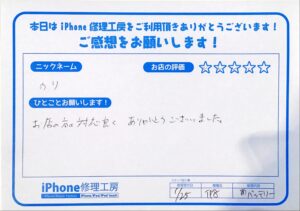 本日は iPhone 修理工房をご利用頂きありがとうございます!
ご感想をお願いします!
ニックネーム
お店の評価 ☆☆☆☆☆
のり
ひとことお願いします!
お店の方の対応良く ありがとうございました。
iPhone修理工房
1/25
バッテリー